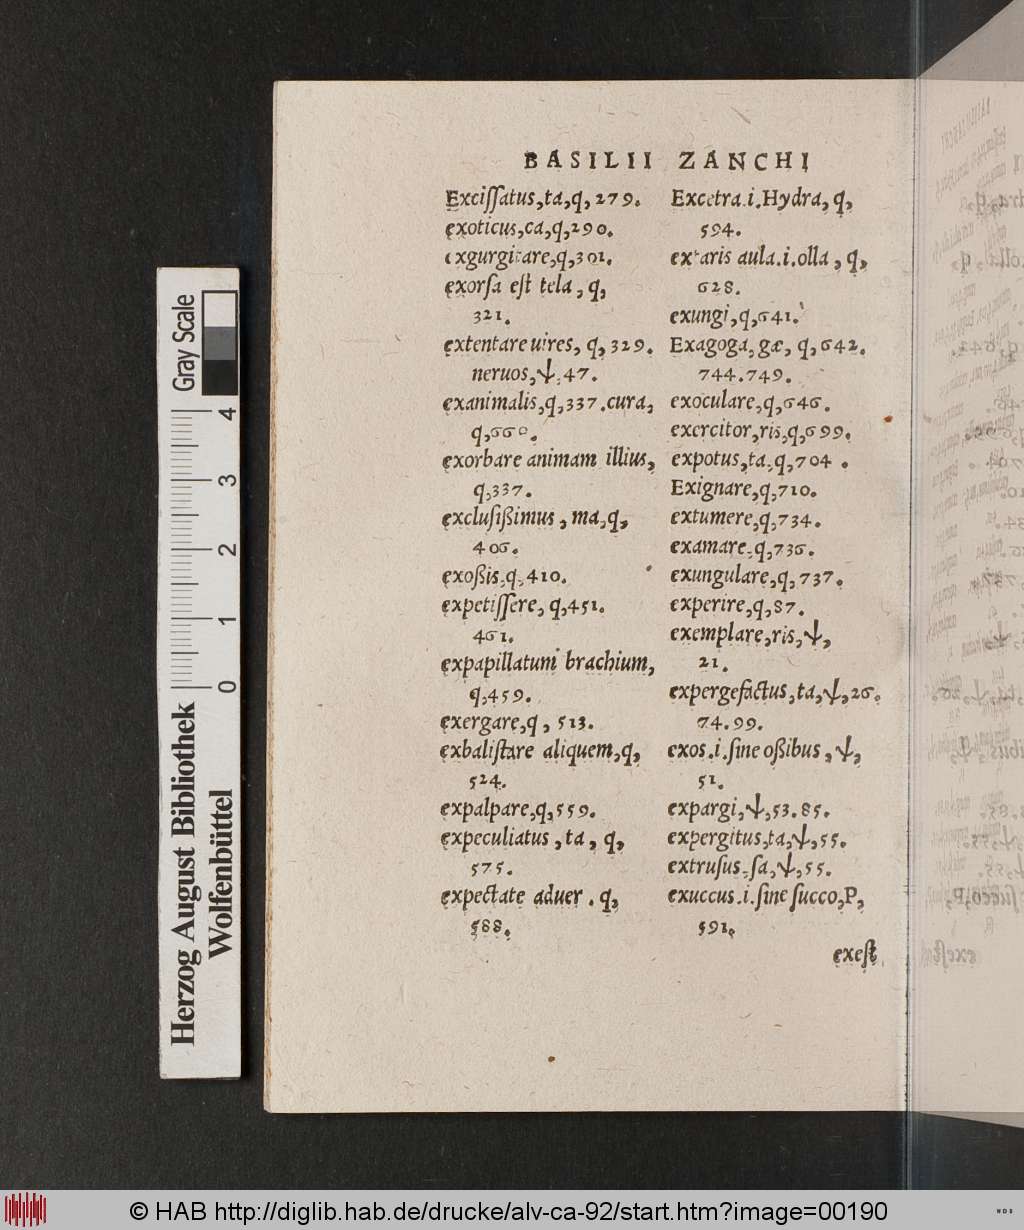 BASILII ZANCHI
Exciſſatus,ta,q,279.
exoticus,ca,q,290.
exgurgitare,q,301.
exorſa eſt tela, q,
321.
extentare uires, q,329.
neruos,Ψ,47.
exanimalis,q,337.cura,
q,660.
exorbare animam illius,
q,337.
excluſißimus, ma,q,
406.
exoßis,q,410.
expetiſſere, q,451.
461.
expapillatum brachium,
q,459.
exergare,q, 513.
exbaliſtare aliquem,q,
524.
expalpare,q,559.
expeculiatus, ta, q,
575.
expectate aduer. q,
588.
Excetra.i.Hydra, q,
594.
extaris aula.i.olla, q,
628.
exungi,q,641.
Exagoga, gæ, q,642.
744.749.
exoculare,q,646.
exercitor,ris,q,699.
expotus,ta,q,704.
Exignare,q,710.
extumere,q,734.
examare,q,736.
exungulare,q,737.
experire,q,87.
exemplare,ris,Ψ,
21.
expergefactus,ta,Ψ,26.
74.99.
exos.i.ſine oßibus,Ψ,
51.
expargi,Ψ,53.85.
expergitus,ta,Ψ,55.
extruſus,ſa,Ψ,55.
exuccus.i.ſine ſucco,P,
591.
exeſt
Gray Scale
4
3
2
1
0
Herzog August Bibliothek
Wolfenbüttel
© HAB http://diglib.hab.de/drucke/alv-ca-92/start.htm?image=00190
WDB